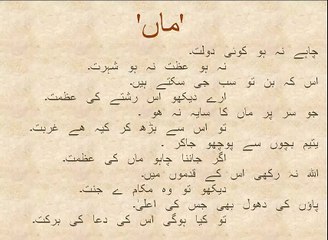 'ماں'
چاہے نہ ہو کوئی دولت.
نہ ہو عظت نہ ہو شہرت.
اس کہ بن تو سب جی سکتے ہیں.
ارے دیکھو اس رشتے کی عظمت.
جو سر پر ماں کا سایہ نہ ھو .
تو اس سے بڑھ کر کیہ ھے غربت.
یتیم بچوں سے پوچھو جاکر .
اگر جاننا چاہو ماں کی عظمت.
اللہ نہ رکھی اس کے قدموں میں.
دیکھو تو وہ مکام ے جنت.
پاؤں کی دھول بھی جس کی اعلیٰ.
تو کیا ہوگی اس کی دعا کی برکت.